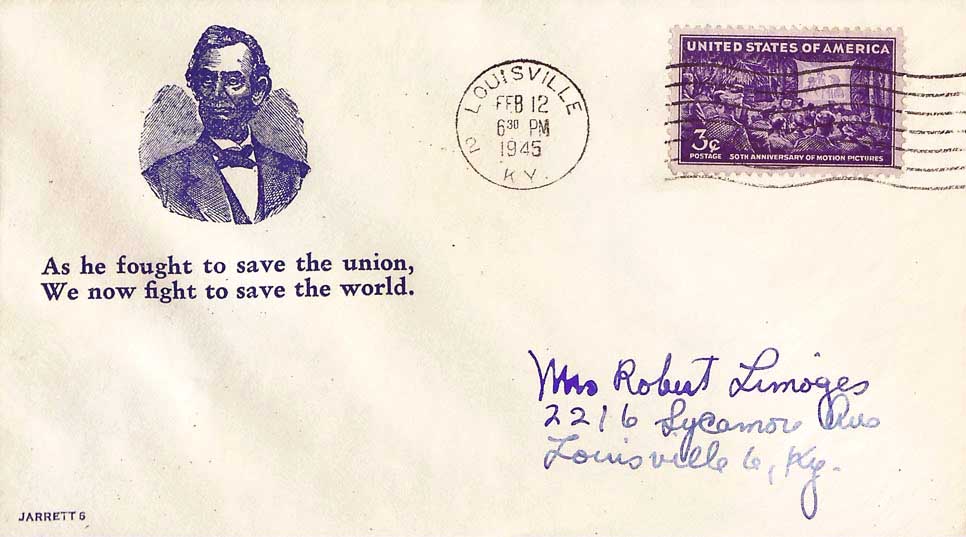 LOUISVILLE
FEB 12
6 30 PM
1945
2
KY.
UNITED STATES OF AMERICA
3¢
POSTAGE 50TH ANNIVERSARY OF MOTION PICTURES
As he fought to save the union,
We now fight to save the world.
Mrs Robert Limoges
2216 Sycamore Ave
Louisville 6, Ky.
JARRETT 6